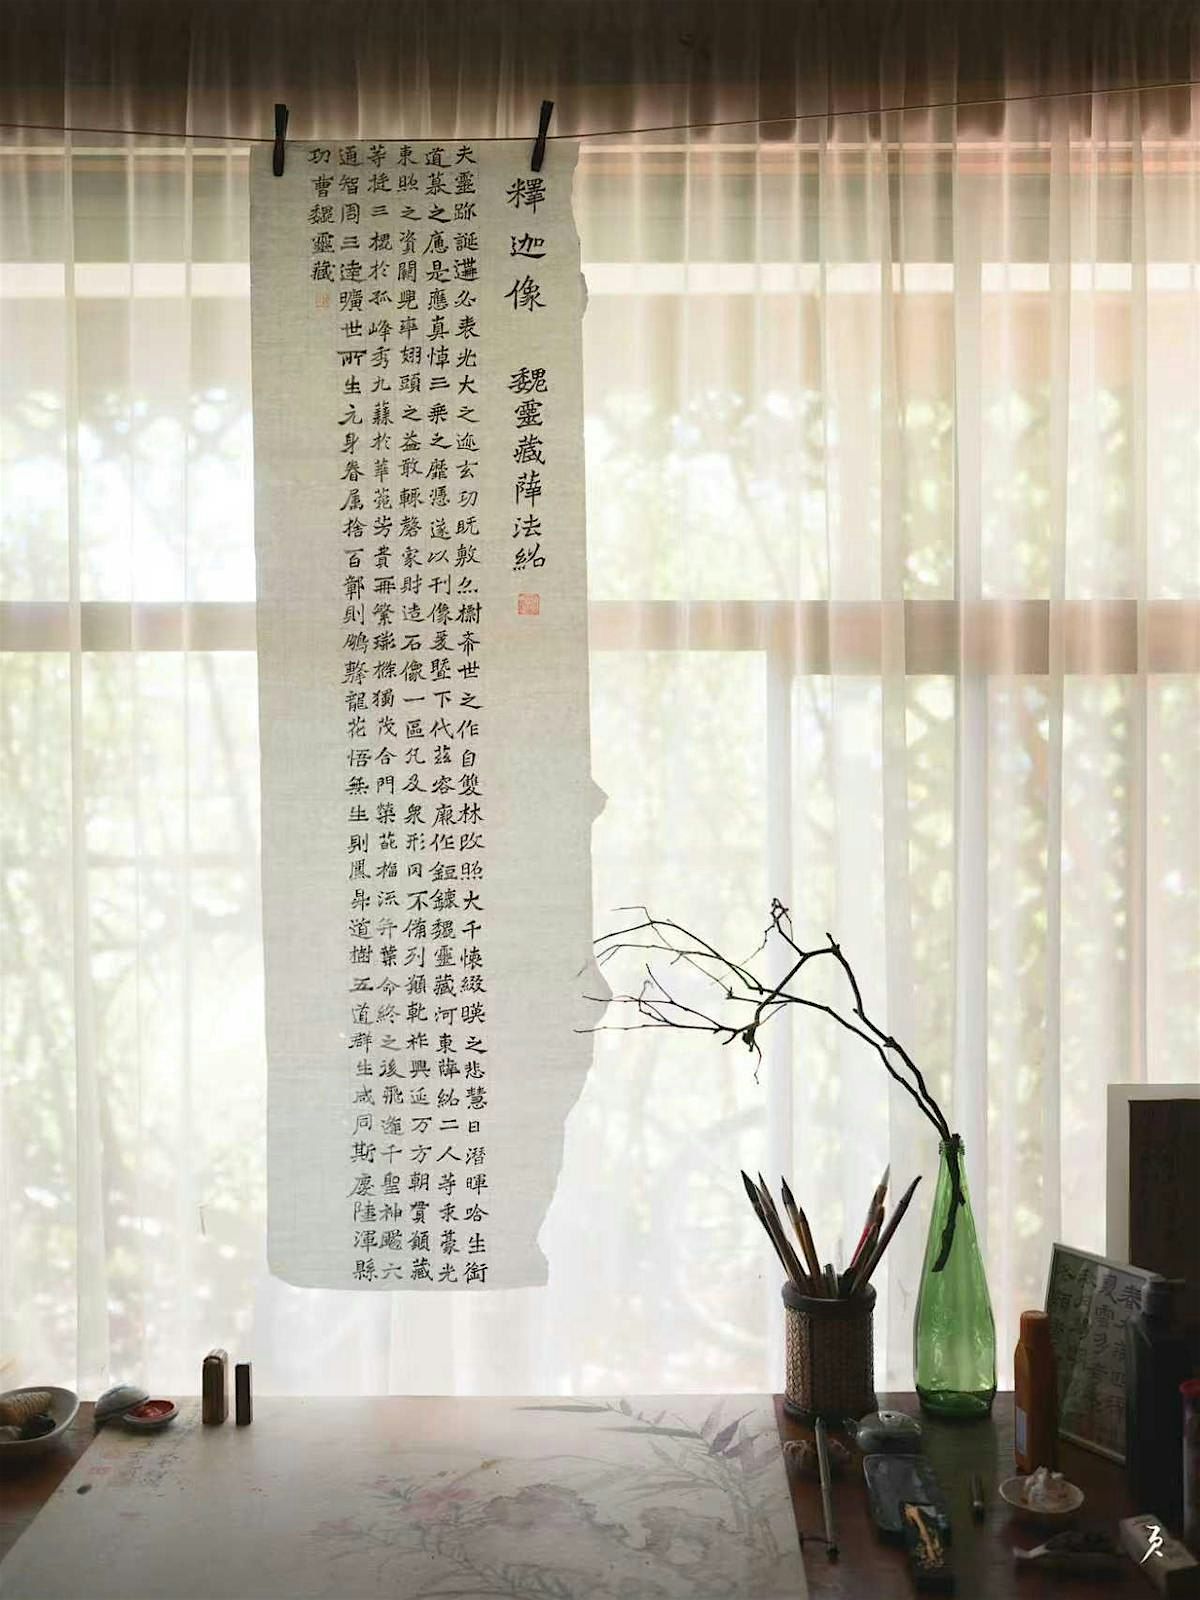 釋迦像 魏靈藏薛法紹
夫靈跡誕遘必表光大之迹玄功既敷亦樹希世之作自雙林改照大千懷綴暎之悲慧日潛暉唅生銜
道慕之應是應真悼三乘之靡憑遂以刊像爰暨下代茲容厥作鉅鑣魏靈藏河東薛紹二人等求豪光
東照之資闕兜率翅頭之益敢輒磬家財造石像一區凡及衆形罔不備列願乾祚興延万方朝貫願藏
等挺三槐於孤峰秀九蕀於華菀芳實再繁瑧條獨茂合門榮葩福流弈葉命終之後飛逢千聖神颺六
通智周三達曠世所生元身眷属捨百鄣則鵬擊龍花悟無生則鳳昇道樹五道群生咸同斯慶陸渾縣
功曹魏靈藏
夏雲多奇